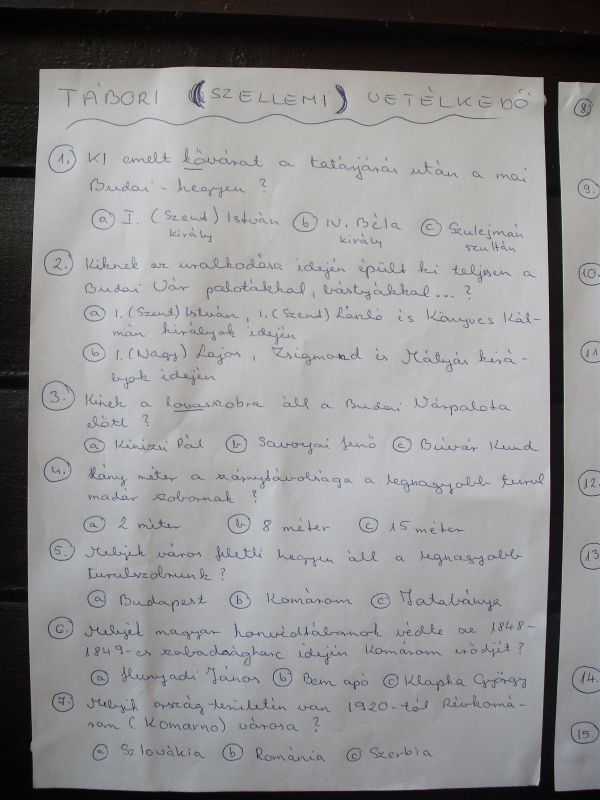 TÁBORI (SZELLEMI) VETÉLKEDŐ
1. KI emelt kővárat a tatárjárás után a mai
Budai-hegyen ?
a I. (Szent) István b IV. Béla c Szulejmán
király király szultán
2. Kiknek az uralkodása idején épült ki teljesen a
Budai Vár palotákkal, bástyákkal... ?
a I. (Szent) István, I. (Szent) László és Könyves Kál-
mán királyok idején
b I. (Nagy) Lajos, Zsigmond és Mátyás kirá-
lyok idején
3. Kinek a lovasszobra áll a Budai Várpalota
előtt ?
a Kinizsi Pál b Savoyai Jenő c Búvár Kund
4. Hány méter a szárnytávolsága a legnagyobb turul
madár szobornak ?
a 2 méter b 8 méter c 15 méter
5. Melyik város feletti hegyen áll a legnagyobb
turulszobrunk ?
a Budapest b Komárom c Tatabánya
6. Melyik magyar honvédtábornok védte az 1848-
1849-es szabadságharc idején Komárom erődjét ?
a Hunyadi János b Bem apó c Klapka György
7. Melyik ország területén van 1920-tól Révkomá-
rom (Komarno) városa ?
a Szlovákia b Románia c Szerbia
8.
9.
10.
11
12.
13
14.
15.